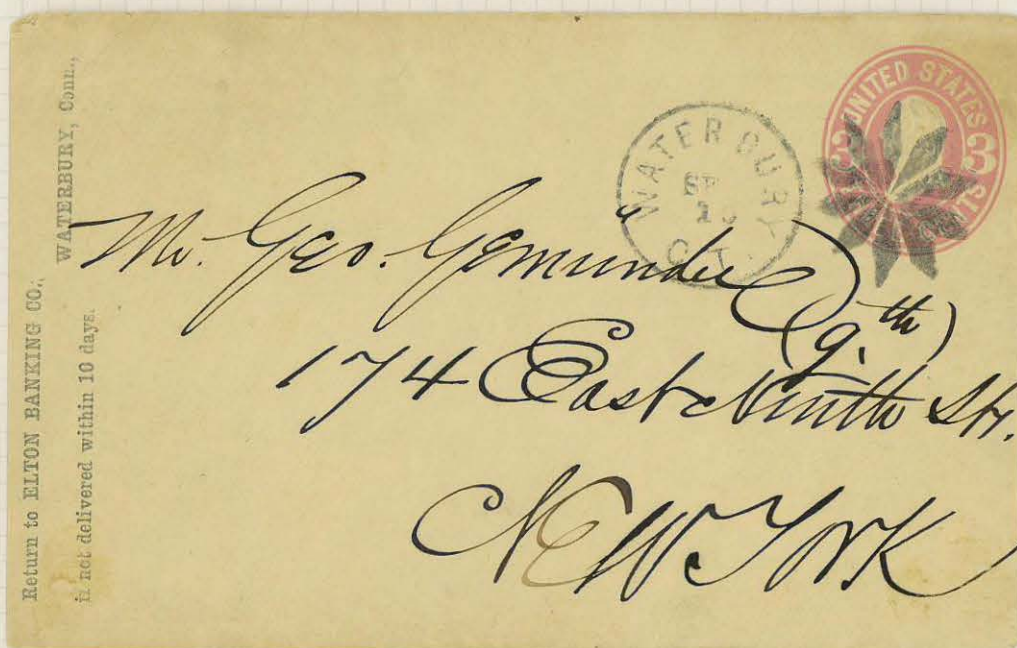 Return to ELTON BANKING CO.,
WATERBURY, Conn.,
if not delivered within 10 days.
WATERBURY
CT.
UNITED STATES
3 3
CENTS
Mr. Geo. Gemunder
(9.th)
174 East Ninth Str.
New York